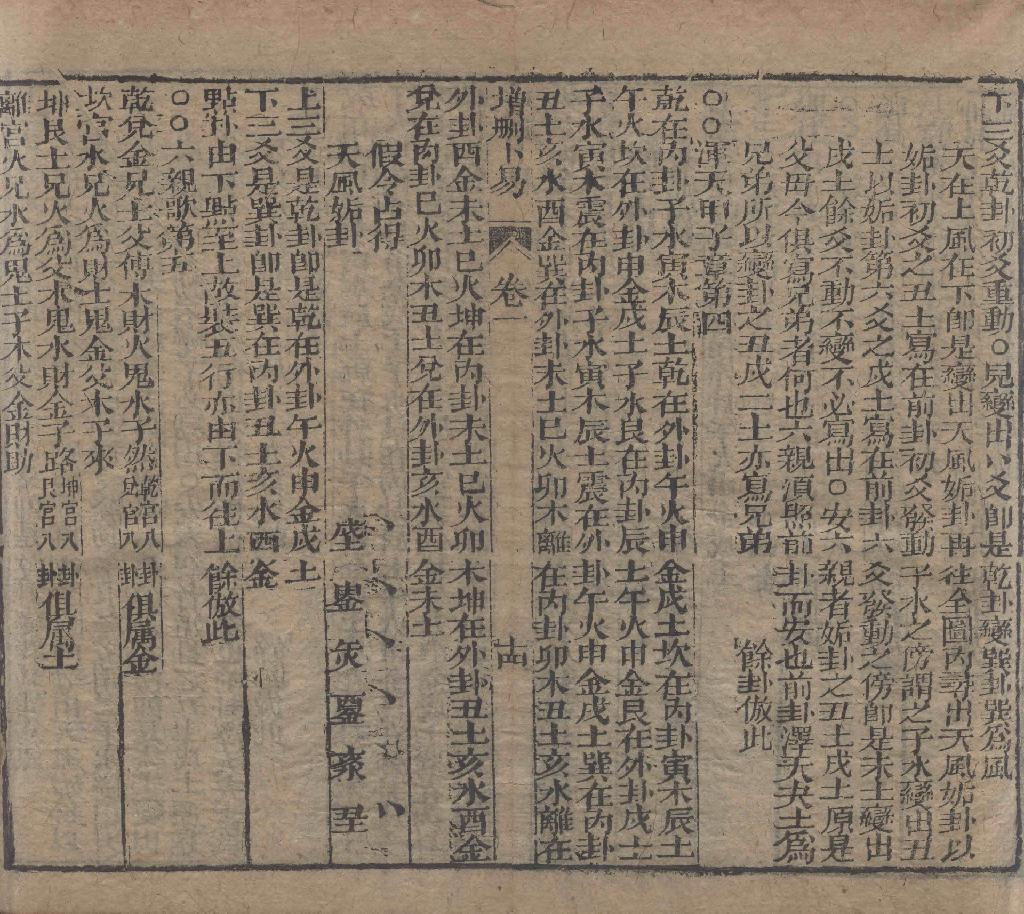 下三爻乾卦初爻重動○見變出八爻即是乾卦變巽卦巽為風
天在上風在下即是變出天風姤卦再往全圖內尋出天風姤卦以
姤卦初爻之丑土寫在前卦初爻發動子水之傍謂之子水變出丑
土以姤卦第六爻之戌土寫在前卦六爻發動之傍即是未土變出
戌土餘爻不動不變不必寫出○安六親者姤卦之丑土戌土原是
父母今俱寫兄弟者何也六親須照前卦而安也前卦澤天夬土為
兄弟所以變卦之丑戌二土亦寫兄弟 餘卦倣此
○○渾天甲子章第四
乾在內卦子水寅木辰土乾在外卦午火申金戌土坎在內卦寅木辰土
午火坎在外卦申金戌土子水艮在內卦辰土午火申金艮在外卦戌土
子水寅木震在內卦子水寅木辰土震在外卦午火申金戌土巽在內卦
丑土亥水酉金巽在外卦未土巳火卯木離在內卦卯木丑土亥水離在
增刪卜易 卷一 十四
外卦酉金未土巳火坤在內卦未土巳火卯木坤在外卦丑土亥水酉金
兌在內卦巳火卯木丑土兌在外卦亥水酉金未土
假令占得
天風姤卦
上三爻是乾卦即是乾在外卦午火申金戌土
下三爻是巽卦即是巽在內卦丑土亥水酉金
點卦由下點至上故裝五行亦由下而往上 餘倣此
○○六親歌第五
乾兌金兄土父傳木財火鬼水子然 乾宮八卦 兌宮八卦 俱屬金
坎宮水兄火為財土鬼金父木子來
坤艮土兄火為父木鬼水財金子路 坤宮八卦 艮宮八卦 俱屬土
離宮火兄水為鬼土子木父金財助